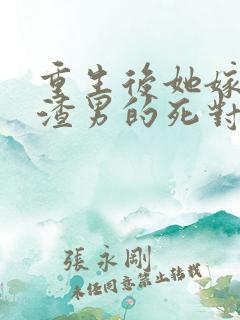 重生後她嫁
渣男的死對
張永剛
未任同意禁止转载